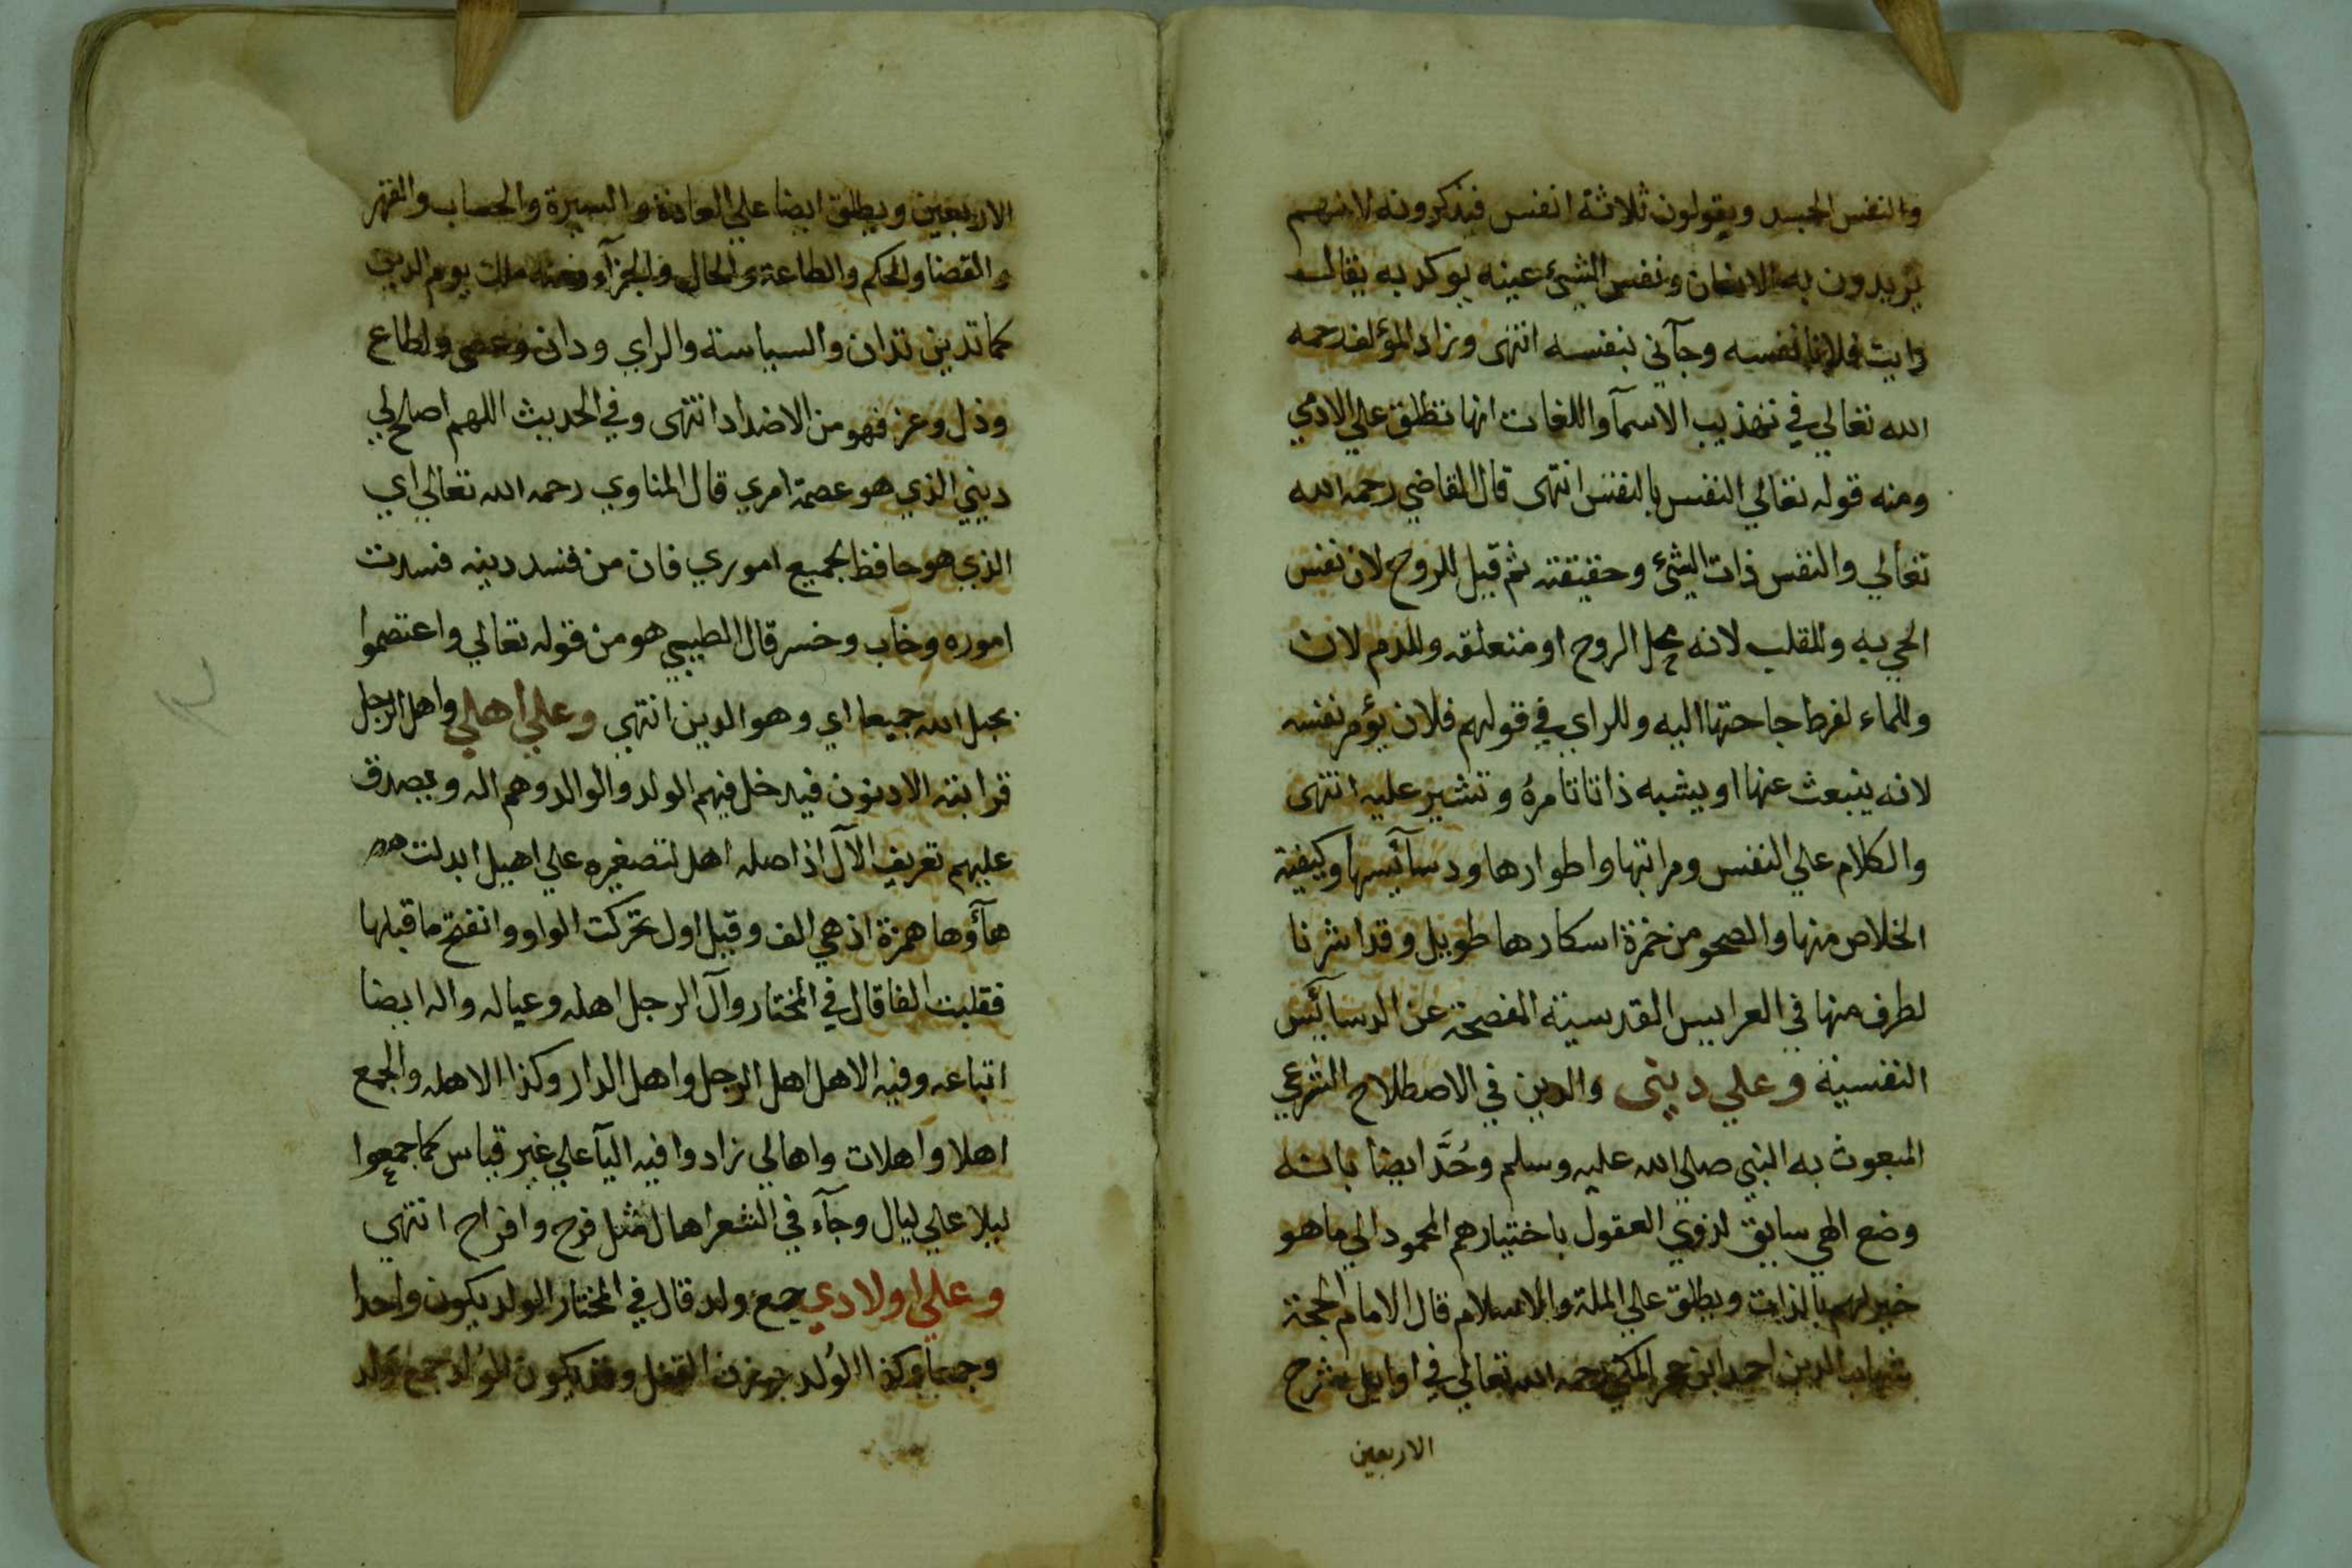 والنفس الجسد ويقولون ثلاثة انفس فيذكرونه لانهم
يريدون به الانسان ونفس الشيئ عينه يوكد به يقال
رايت فلانا نفسه وجآني بنفسه انتهى وزاد المؤلف رحمه
الله تعالي في تهذيب الاسمآ واللغات انها تطلق علي الادمي
ومنه قوله تعالي النفس بالنفس انتهى قال القاضي رحمه الله
تعالي والنفس ذات الشئ وحقيقته ثم قيل للروح لان نفس
الحي به وللقلب لانه محل الروح او متعلقه وللدم لان
وللماء لفرط حاجتها اليه وللراي في قولهم فلان يؤمر نفسه
لانه ينبعث عنها او يشبه ذاتا تامرهُ وتشير عليه انتهى
والكلام علي النفس ومراتبها واطوارها ودسآئيسها وكيفية
الخلاص منها والصحو من خمرة اسكارها طويل وقد اشرنا
لطرف منها في العرايس القدسية المفصحة عن الدسآئيس
النفسية وعلي ديني والدين في الاصطلاح الشرعي
المبعوث به النبي صلي الله عليه وسلم وحُدَّ ايضا بانه
وضع الهي سايق لذوي العقول باختيارهم المحمود الي ما هو
خير لهم بالذات ويطلق علي الملة والاسلام قال الامام الحجة
شهاب الدين احمد ابن حجر المكي رحمه الله تعالي في اوايل شرح
الاربعين
الاربعين ويطلق ايضا علي العادة والسيرة والحساب والقهر
والقضا والحكم والطاعة والحال والجزآء ومنه ملك يوم الدين
كما تدين تدان والسياسة والراي ودان وعصى واطاع
وذل وعز فهو من الاضداد انتهى وفي الحديث اللهم اصلح لي
ديني الذي هو عصمة امري قال المناوي رحمه الله تعالي اي
الذي هو حافظ لجميع اموري فان من فسد دينه فسدت
اموره وخاب وخسر قال الطيبي هو من قوله تعالي واعتصموا
بحبل الله جميعا اي وهو الدين انتهي وعلي اهلي واهل الرجل
قرابته الادنون فيدخل فيهم الولد والوالد وهم اله ويصدق
عليهم تعريف الآل اذ اصله اهل لتصغيره علي اهيل ابدلت
هآؤها همزة اذ هي الف وقيل اول تحركت الواو وانفتح ما قبلها
فقلبت الفا قال في المختار وآل الرجل اهله وعياله واله ايضا
اتباعه وفيه الاهل اهل الرجل واهل الدار وكذا الاهله والجمع
اهلا واهلات واهالي زادوا فيه اليآ علي غير قياس كما جمعوا
ليلا علي ليال وجآء في الشعر اهال مثل فرح وافراح انتهي
وعلي اولادي جمع ولد قال في المختار الولد يكون واحدا
وجمعا وكذا الوُلد بوزن القفل وقد يكون الوُلد جمع وَلد